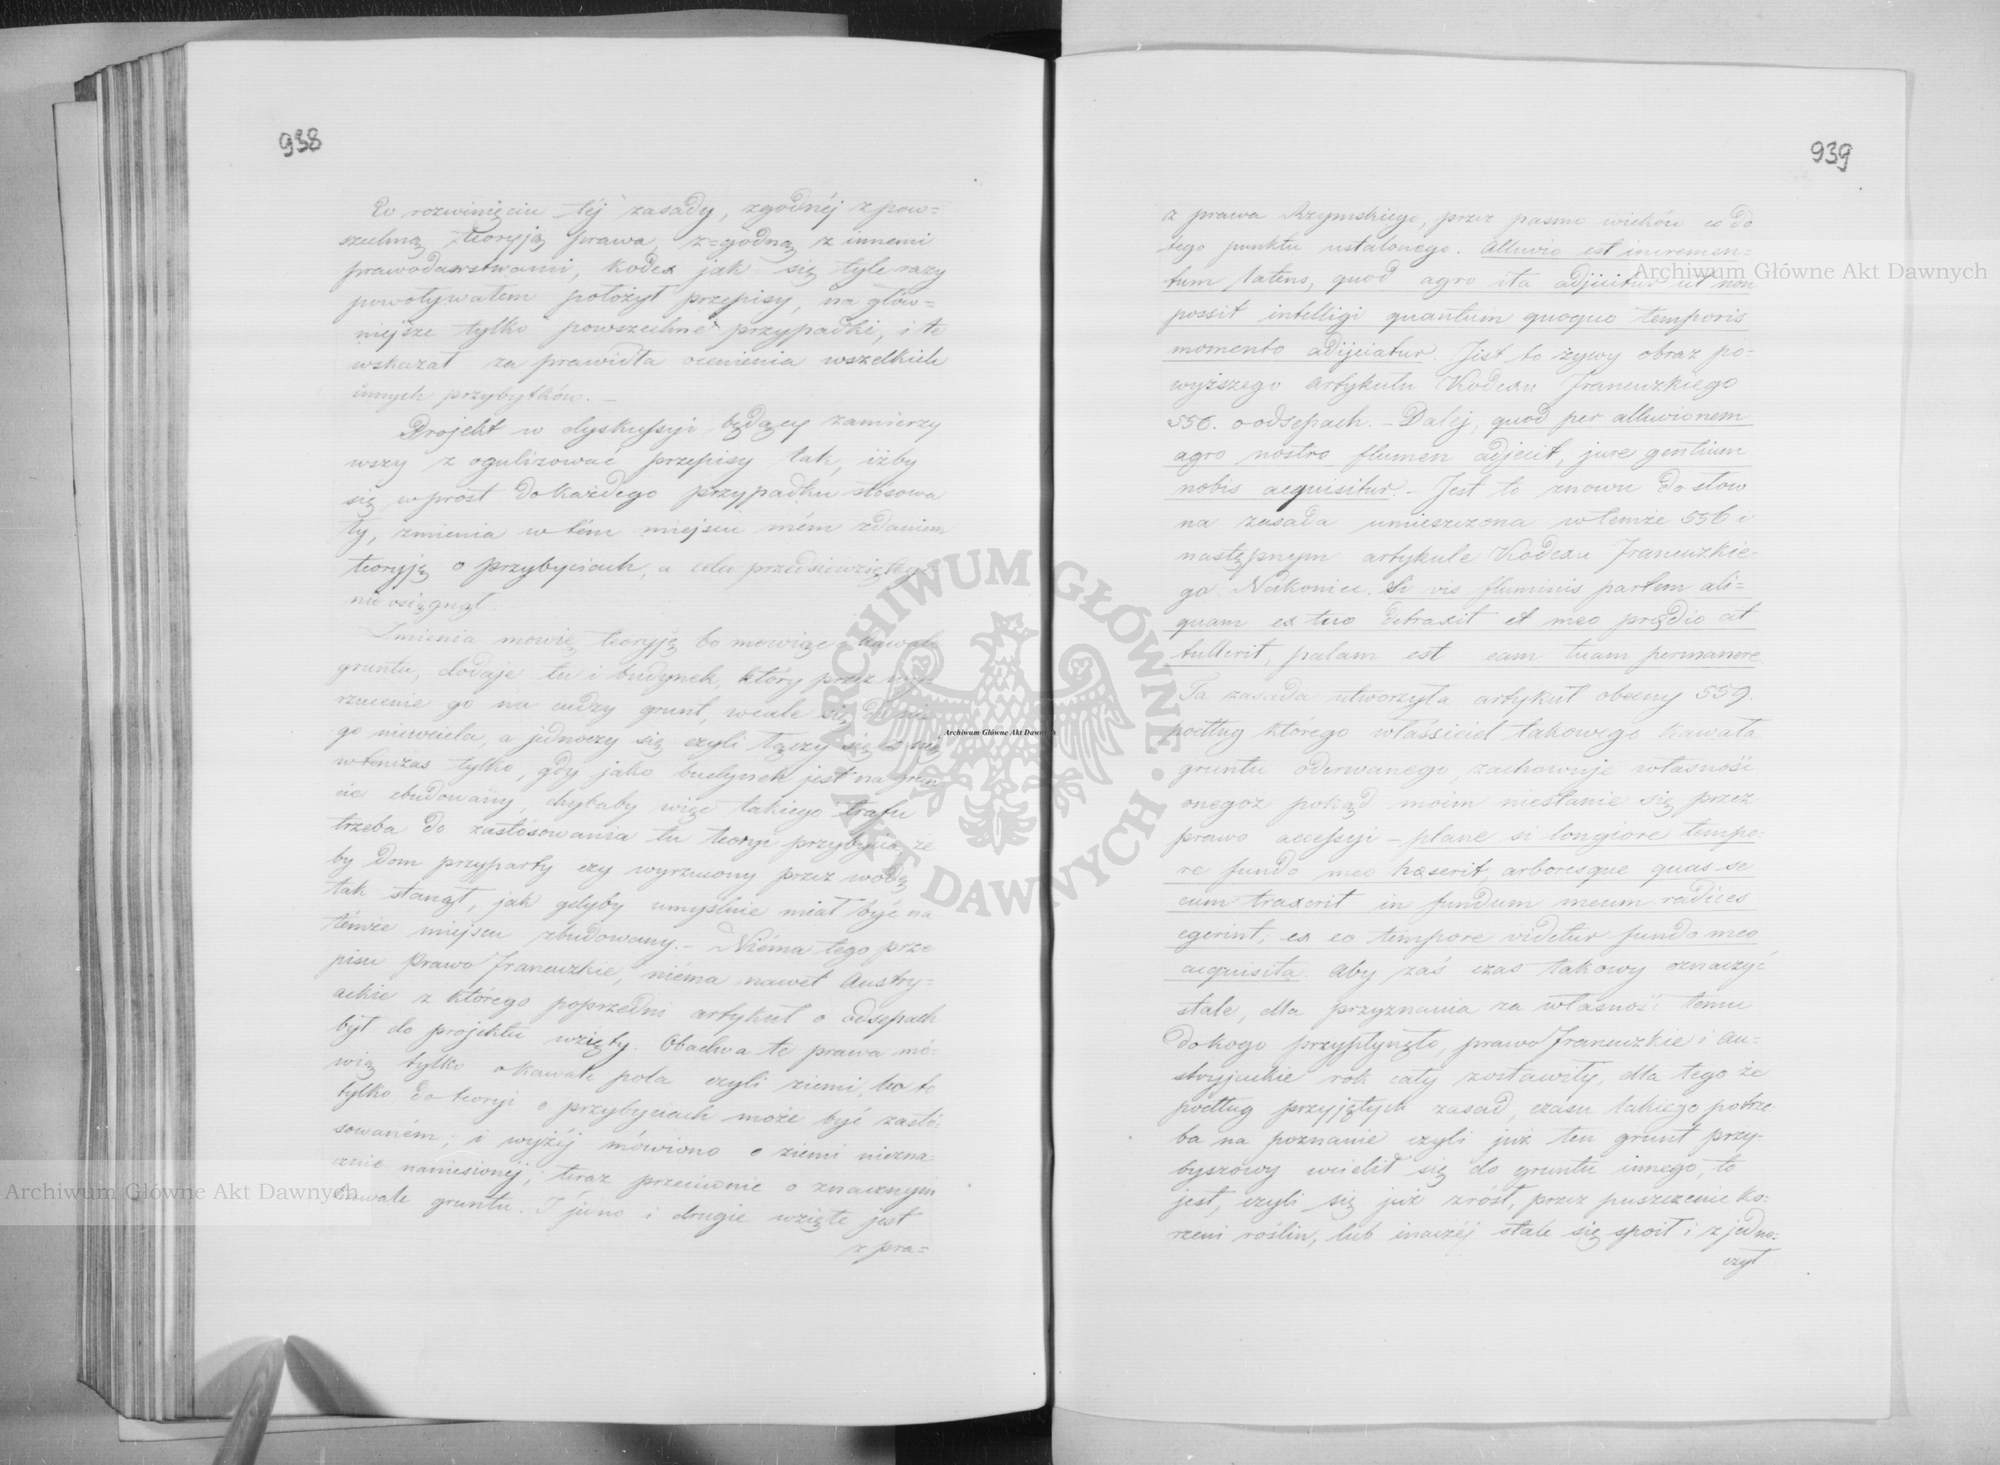 938
W rozwinięciu téj zasady, zgodnéj z pow=
szechną teoryją prawa, z=godną z innemi
prawodawstwami, Kodex jak się tyle razy
powoływałem położył przepisy, na głów=
niejsze tylko powszechne przypadki, i te
wskazał za prawidła ocenienia wszelkich
innych przybytków. —
Projekt w dyskussyi będący zamierzy
wszy z ogulizować przepisy tak, iżby
się wprost do każdego przypadku stosowa
ły, zmienia w tém miejscu mém zdaniem
teoryją o przybyciach, a celu przedsiewziętego
nie osiągnął.
Zmienia mowię teoryją bo mowiąc o kawale
gruntu, dodaje tu i budynek, który przez wy=
rzucenie go na cudzy grunt, wcale się do nie
go niewciela, a jednoczy się czyli łączy się z nią
wtenczas tylko, gdy jako budynek jest na grun
cie zbudowany, chybaby więc takiego trafu
trzeba do zastósowania tu teoryi przybycia, że
by dom przyparty czy wyrzucony przez wodę
tak stanął, jak gdyby umyślnie miał być na
témże miejscu zbudowany. — Niéma tego prze
pisu Prawo Francuzkie, niéma nawet Austry=
ackie z którego poprzedni artykuł o odsepach
był do projektu wzięty. Obadwa te prawa mó=
wią tylko o kawale pola czyli ziemi, bo to
tylko do teoryi o przybyciach może być zastó=
sowaném; i wyżéj mówiono o ziemi niezna=
cznie naniesionéj; teraz przeciwnie o znacznym
kawale gruntu. I jedno i drugie wzięte jest
z pra=
939
z prawa Rzymskiego, przez pasmo wieków co do
tego punktu ustalonego. Alluvio est incremen=
tum latens, quod agro ita adjicitur ut non
possit intelligi quantum quoquo temporis
momento adijciatur. Jest to żywy obraz po=
wyższego artykułu Kodexu Francuzkiego
556. o odsepach. — Daléj, quod per alluvionem
agro nostro flumen adjecit, jure gentium
nobis acquisitur. — Jest to znowu do słow
na zasada umieszczona w temże 556 i
następnym artykule Kodexu Francuzkie=
go. Nakoniec. Si vis fluminis partem ali=
quam ex tuo detraxit et meo prædio at
tullerit, palam est eam tuam permanere
Ta zasada utworzyła artykuł obecny 559.
podług którego właściciel takowego kawała
gruntu oderwanego, zachowuje własność
onegoż pokąd moim niestanie się przez
prawo accessyi — plane si longiore tempo=
re fundo meo hæserit, arboresque quas se
cum traxerit in fundum meum radices
egerint; ex eo tempore videtur fundo meo
acquisita. Aby zaś czas takowy oznaczyć
stale, dla przyznania za własność temu
do kogo przypłynęło, prawo Francuzkie i Au=
stryjackie rok cały zostawiły, dla tego że
podług przyjętych zasad, czasu takiego potrze
ba na poznanie czyli już ten grunt przy=
byszowy wcielił się do gruntu innego, to
jest, czyli się już zrósł, przez puszczenie ko=
rzeni roślin, lub inaczéj stale się spoił i zjedno=
czył
Archiwum Główne Akt Dawnych
Archiwum Główne Akt Dawnych
Archiwum Główne Akt Dawnych
ARCHIWUM GŁÓWNE AKT DAWNYCH